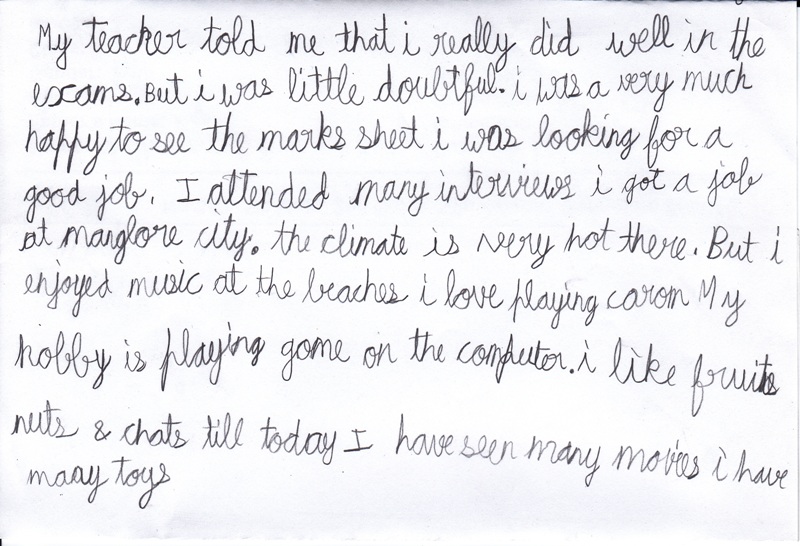 My teacher told me that i really did well in the
exams. But i was little doubtful. i was a very much
happy to see the marks sheet i was looking for a
good job. I attended many interviews i got a job
at manglore city. the climate is very hot there. But i
enjoyed music at the beaches i love playing carom My
hobby is playing game on the computor. i like fruits
nuts & chats till today I have seen many movies i have
many toys